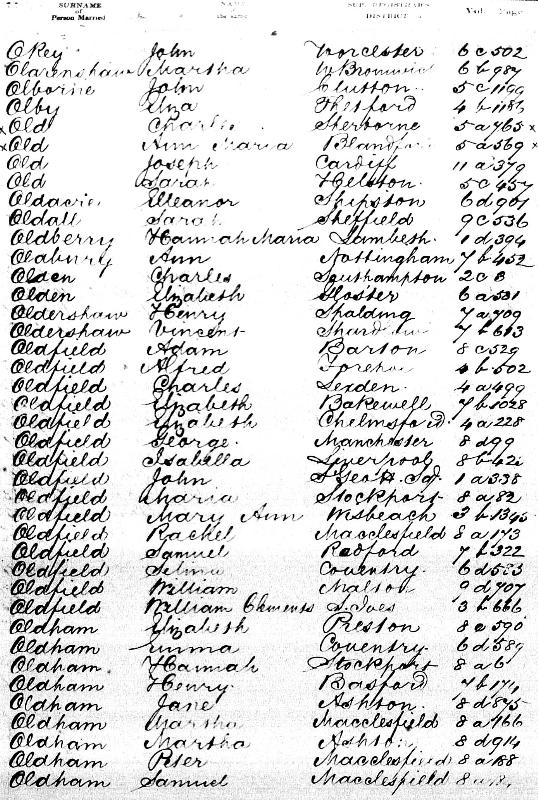 SURNAME NAME SUP. REGISTRAR'S Vol. Page
of Person Married DISTRICT
Okey John Worcester 6 c 502
Olarenshaw Martha W Bromwich 6 b 987
Olborne John Clutton 5 c 1199
Olby Eliza Thetford 4 b 1186
x Old Charles Sherborne 5 a 765 x
x Old Ann Maria Blandford 5 a 569 x
Old Joseph Cardiff 11 a 379
Old Sarah Helston 5 c 457
Oldacre Eleanor Shipston 6 d 901
Oldall Sarah Sheffield 9 c 536
Oldberry Hannah Maria Lambeth 1 d 394
Oldbury Ann Nottingham 7 b 452
Olden Charles Southampton 2 c 8
Olden Elizabeth Gloster 6 a 531
Oldershaw Henry Spalding 7 a 709
Oldershaw Vincent Shardlow 7 b 613
Oldfield Adam Barton 8 c 529
Oldfield Alfred Forehoe 4 b 502
Oldfield Charles Lexden 4 a 499
Oldfield Elizabeth Bakewell 7 b 1028
Oldfield Elizabeth Chelmsford 4 a 228
Oldfield George Manchester 8 d 99
Oldfield Isabella Liverpool 8 b 421
Oldfield John S Geo H. Sq. 1 a 338
Oldfield Maria Stockport 8 a 82
Oldfield Mary Ann Wisbeach 3 b 1345
Oldfield Rachel Macclesfield 8 a 173
Oldfield Samuel Radford 7 b 322
Oldfield Selina Coventry 6 d 583
Oldfield William Malton 9 d 707
Oldfield William Clements S. Ives 3 b 666
Oldham Elizabeth Preston 8 e 590
Oldham Emma Coventry 6 d 589
Oldham Hannah Stockport 8 a 6
Oldham Henry Basford 7 b 171
Oldham Jane Ashton 8 d 875
Oldham Martha Macclesfield 8 a 166
Oldham Martha Ashton 8 d 914
Oldham Peter Macclesfield 8 a 188
Oldham Samuel Macclesfield 8 a